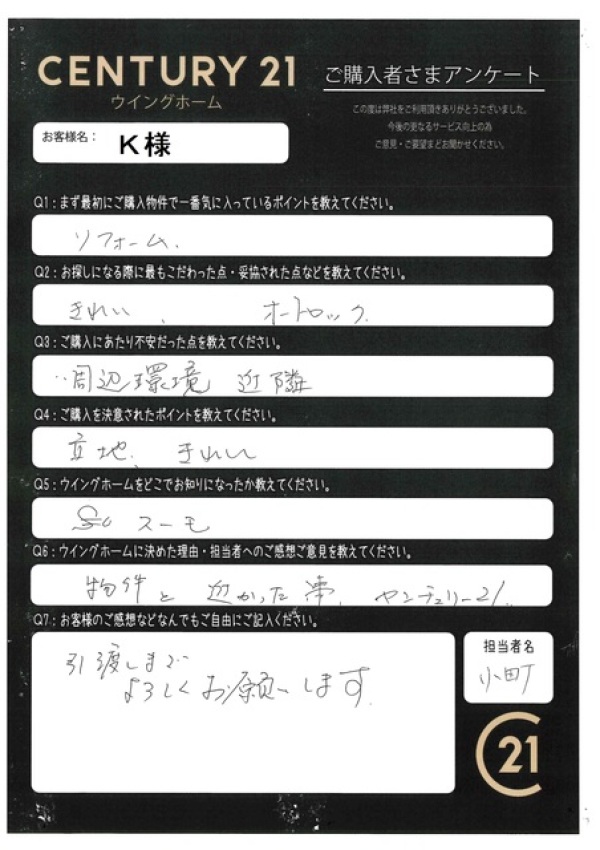 CENTURY 21
ウイングホーム
ご購入者さまアンケート
この度は弊社をご利用頂きありがとうございました。
今後の更なるサービス向上の為
ご意見・ご要望まどお聞かせください。
お客様名： K様
Q1：まず最初にご購入物件で一番気に入っているポイントを教えてください。
リフォーム.
Q2：お探しになる際に最もこだわった点・妥協された点などを教えてください。
きれい、 オートロック.
Q3：ご購入にあたり不安だった点を教えてください。
周辺環境 近隣
Q4：ご購入を決意されたポイントを教えてください。
立地、きれい
Q5：ウイングホームをどこでお知りになったか教えてください。
スーモ
Q6：ウイングホームに決めた理由・担当者へのご感想ご意見を教えてください。
物件と 近かった事、センチュリー21.
Q7：お客様のご感想などなんでもご自由にご記入ください。
引渡しまで
よろしくお願いします
担当者名
小町
21